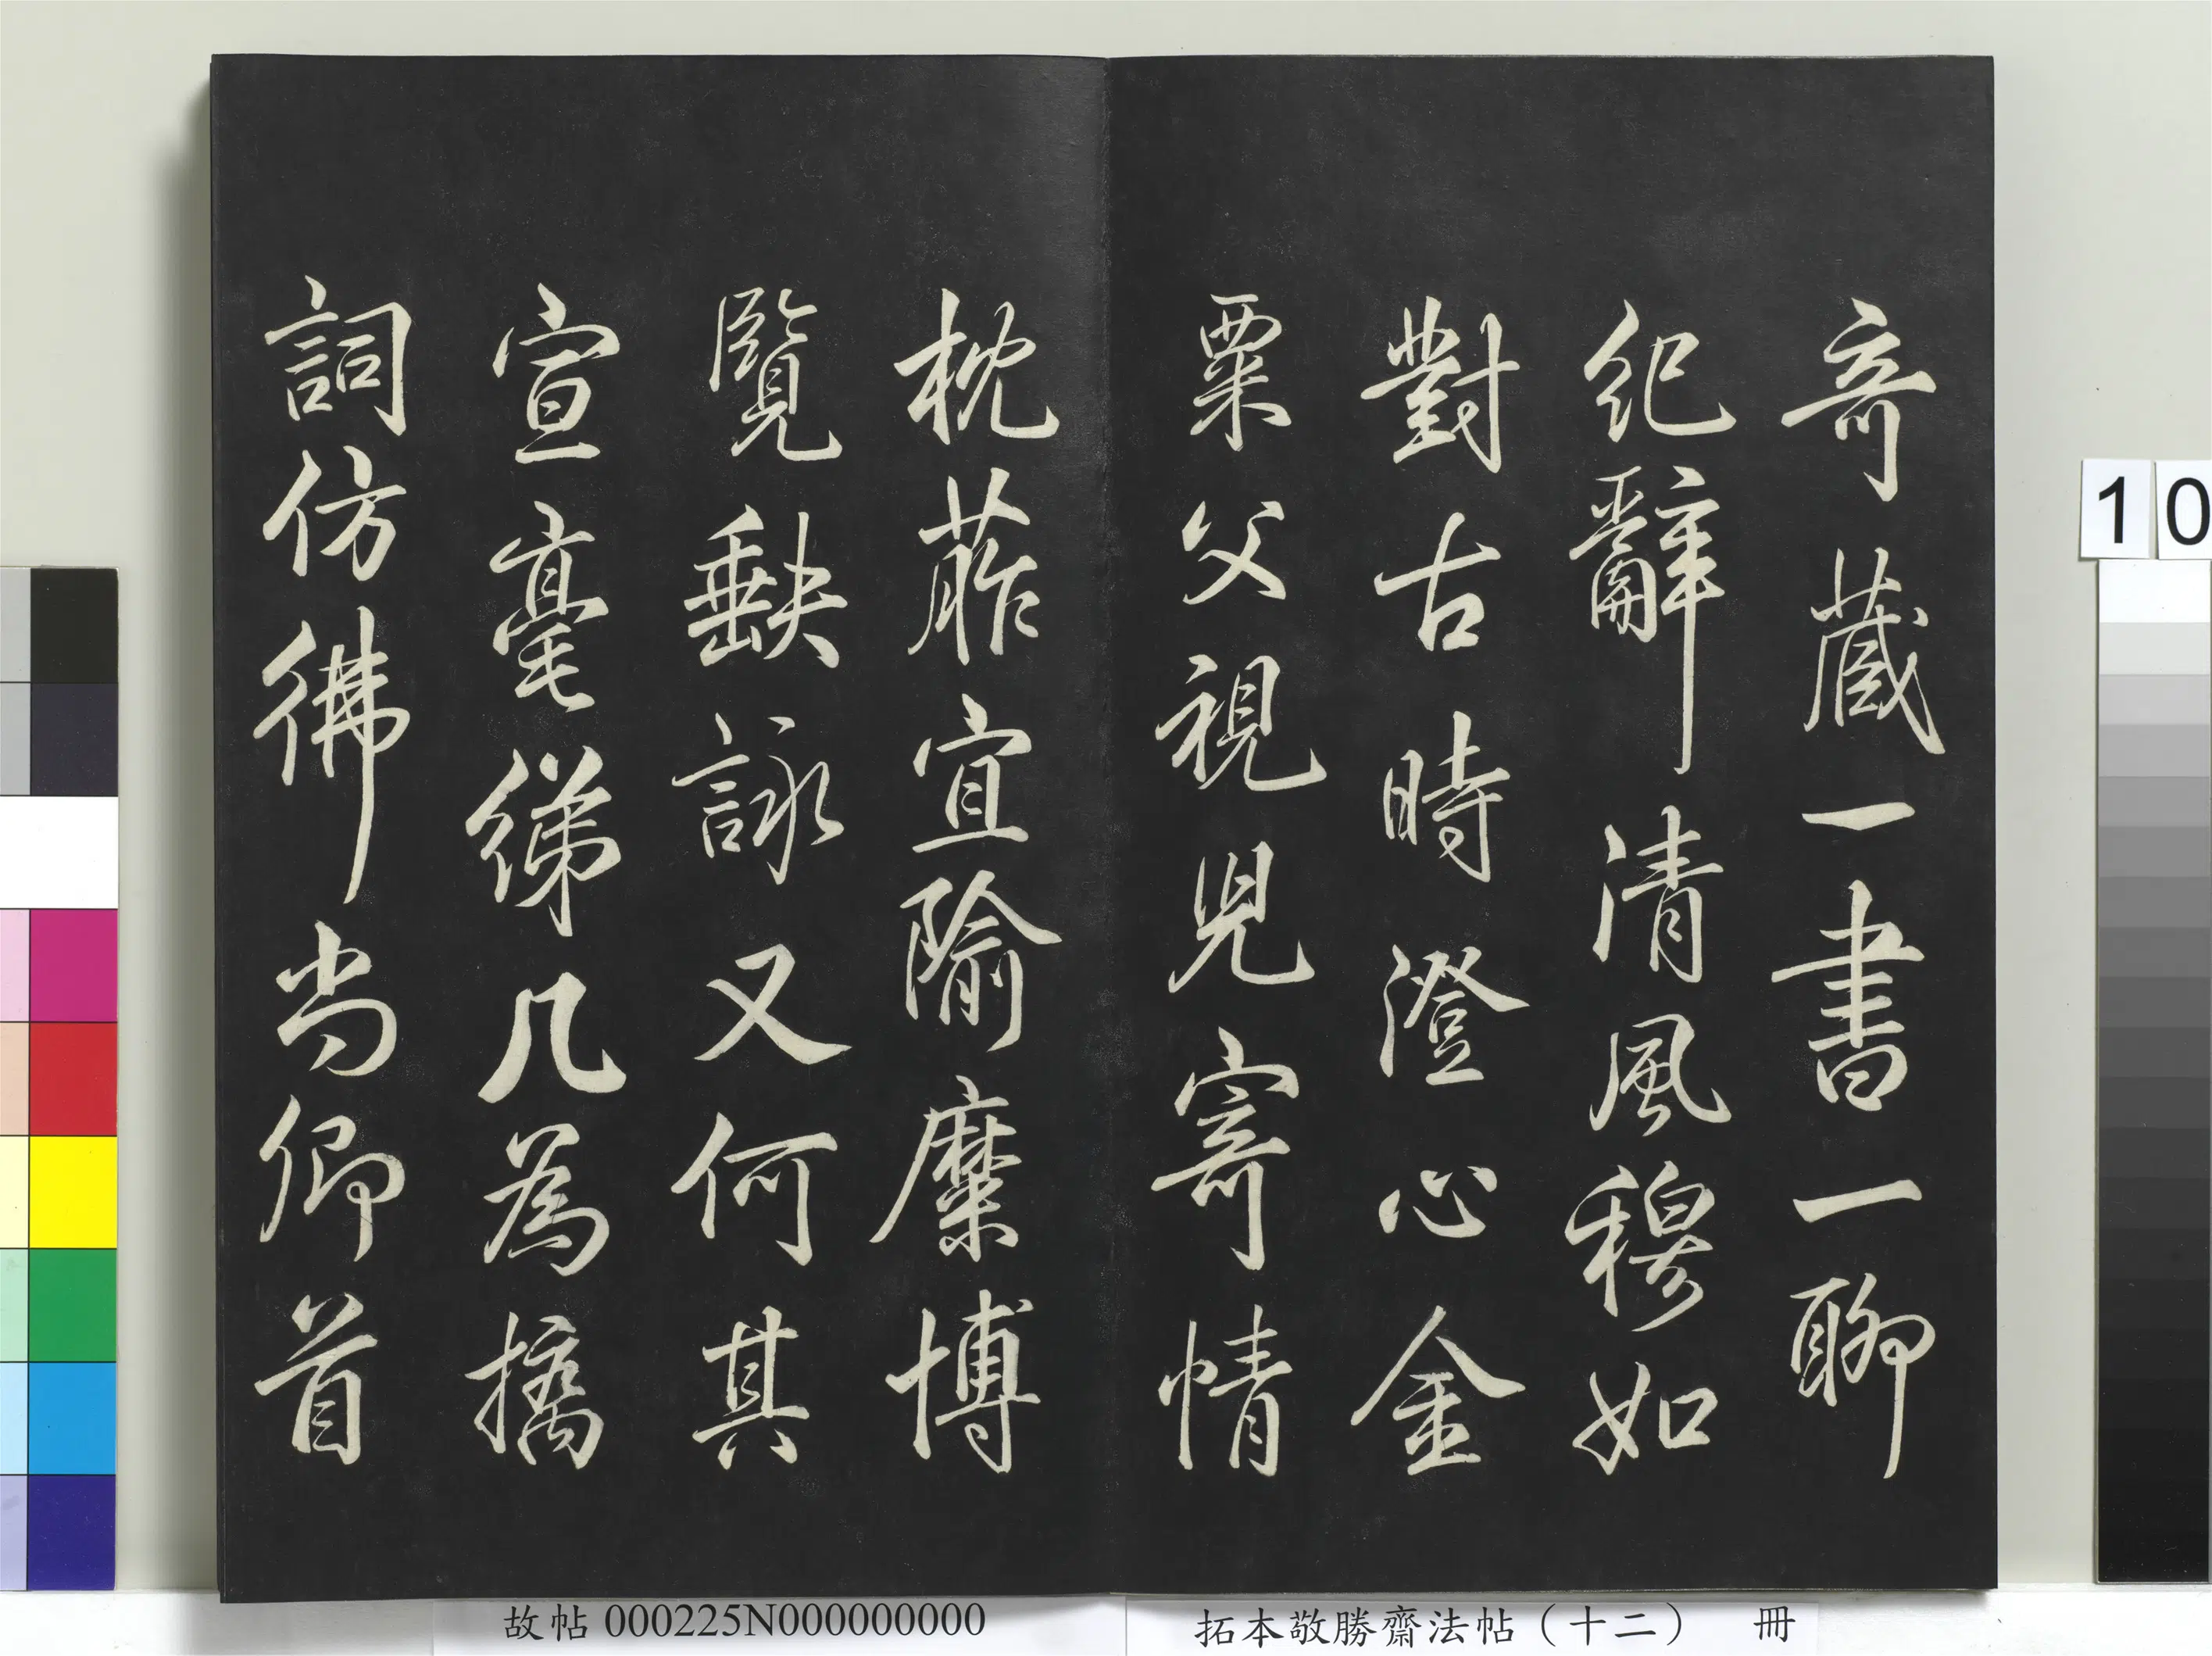 奇藏一書一聊
紀辭清風穆如
對古時澄心金
粟父視兒寄情
枕葄宜隃麋博
覽缺詠又何其
宣毫綈几為摛
詞仿彿尚卿首
10
故帖 000225N000000000
拓本敬勝齋法帖（十二） 冊